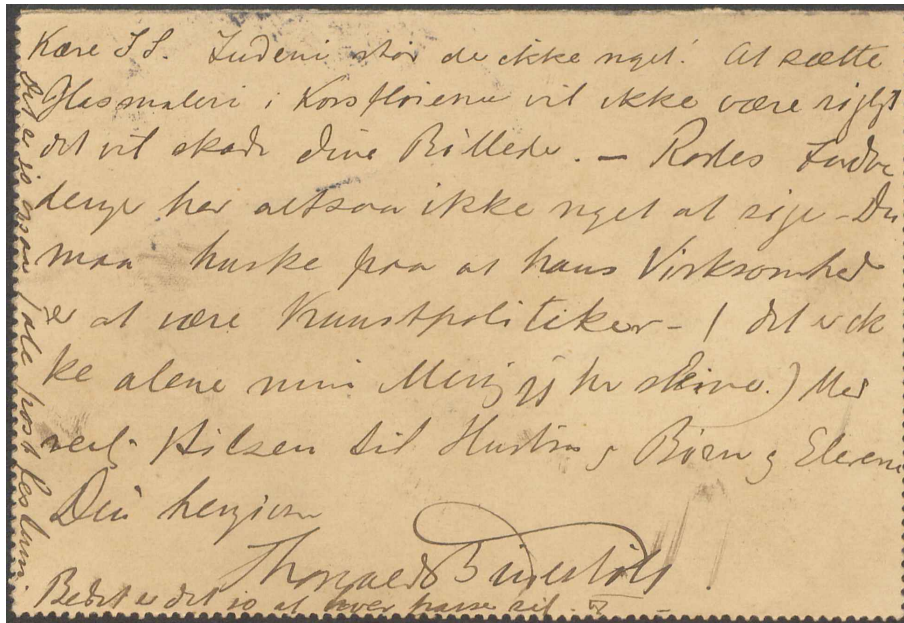 Kære J S. Indeni staar de ikke noget! At sætte
Glasmaleri i Korsfløiene vil ikke være rigtigt
det vil skade dine Billeder. – Rodes
denge har altsaa ikke noget at sige – Du
maa huske paa at hans Virksomhed
er at være Kunstpolitiker – ( det er ik
ke alene min Mening jeg her skriver.) Med
venl. Hilsen til Hustru og Børn og Eleverne
Din hengivne
Thorvald Bindesbøll
Bedst er det jo at hver passe sit.
Det er jo osaa Tale post festum.